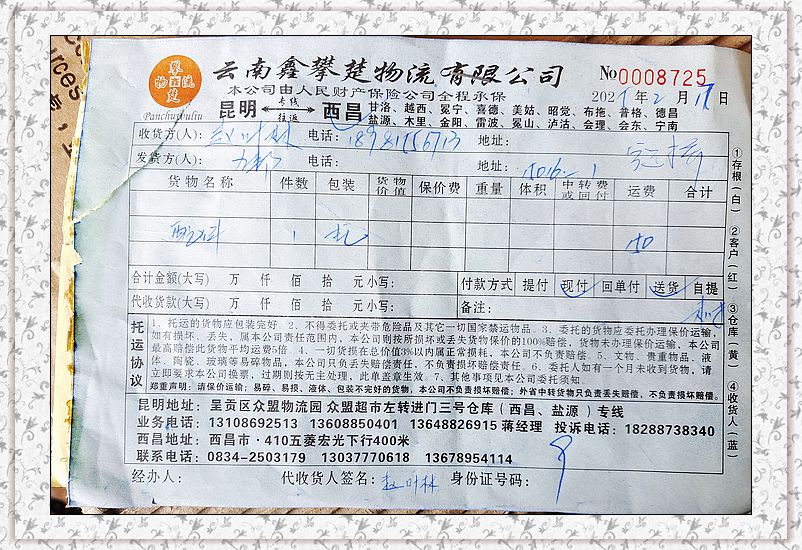 云南鑫攀楚物流有限公司
No 0008725
本公司由人民财产保险公司全程承保
攀
物西流
楚
Panchuwuliu
昆明 专线 往返 西昌
甘洛、越西、冕宁、喜德、美姑、昭觉、布拖、普格、德昌
盐源、木里、金阳、雷波、冕山、泸沽、会理、会东、宁南
202 年2月1 日
收货方(人): 赵叶林 电话: 地址:
发货方(人): 电话: 地址:
货物名称 件数 包装 货物价值 保价费 重量 体积 中转费或回付 运费 合计
1
合计金额(大写) 万 仟 佰 拾 元小写: 付款方式 提付 现付 回单付 送货 自提
代收货款(大写) 万 仟 佰 拾 元小写: 备注:
托运协议
1、托运的货物应包装完好。2、不得委托或夹带危险品及其它一切国家禁运物品。3、委托的货物应委托办理保价运输,
如有损坏、丢失,属本公司责任范围内,本公司则按所损坏或丢失货物保价的100%赔偿,货物未办理保价运输,本公司
最高赔偿此货物平均运费5倍。4、一切货损在总价值3%以内属正常损耗,本公司不负责赔偿。5、文物、贵重物品、液
体、陶瓷、玻璃等易碎物品,本公司只负责丢失赔偿责任,不负责损坏赔偿责任。6、委托人如有一个月未收到货物,请
立即要求本公司换票,过期则按无主处理,此单盖章生效。7、其他事项见本公司委托须知。
郑重声明:请保价运输;易碎、易损、液体、包装不完好的货物,本公司不负责损坏赔偿;外省中转货物只负责丢失赔偿,不负责损坏赔偿。
昆明地址:呈贡区众盟物流园 众盟超市左转进门三号仓库(西昌、盐源)专线
业务电话:13108692513 13608850401 13648826915 蒋经理 投诉电话:18288738340
西昌地址:西昌市·410五菱宏光下行400米
联系电话:0834-2503179 13037770618 13678954114
经办人: 代收货人签名: 赵叶林 身份证号码:
①存根(白) ②客户(红) ③仓库(黄) ④收货人(蓝)